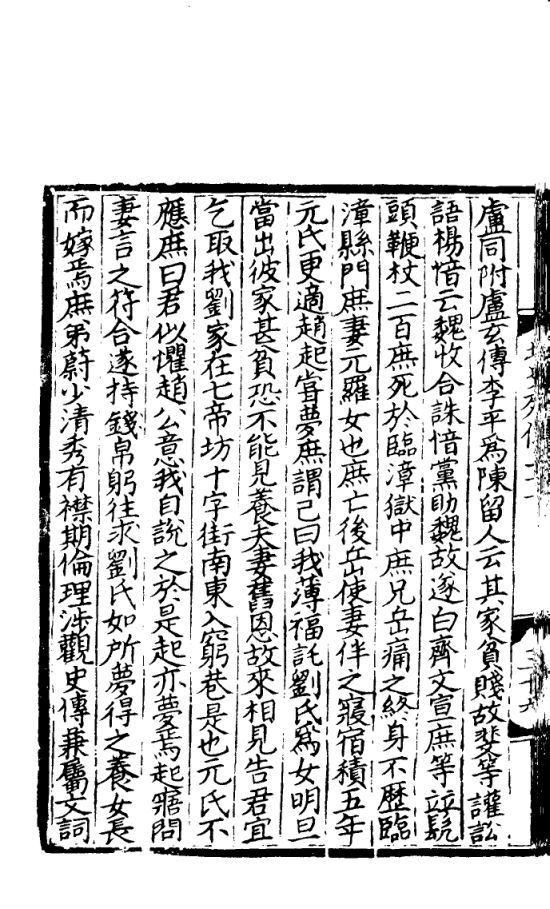 盧同附盧玄傳李平爲陳留人云其家貧賤故斐等讙訟
語楊愔云魏收合誅愔黨助魏故遂白齊文宣庶等並髡
頭鞭杖二百庶死於臨漳獄中庶兄岳痛之終身不歷臨
漳縣門庶妻元羅女也庶亡後岳使妻伴之寢宿積五年
元氏更適趙起嘗夢庶謂己曰我薄福託劉氏爲女明旦
當出彼家甚貧恐不能見養夫妻舊恩故來相見告君宜
乞取我劉家在七帝坊十字街南東入窮巷是也元氏不
應庶曰君似懼趙公意我自說之於是起亦夢焉起寤問
妻言之符合遂持錢帛躬往求劉氏如所夢得之養女長
而嫁焉庶弟蔚少清秀有襟期倫理涉觀史傳兼屬文詞